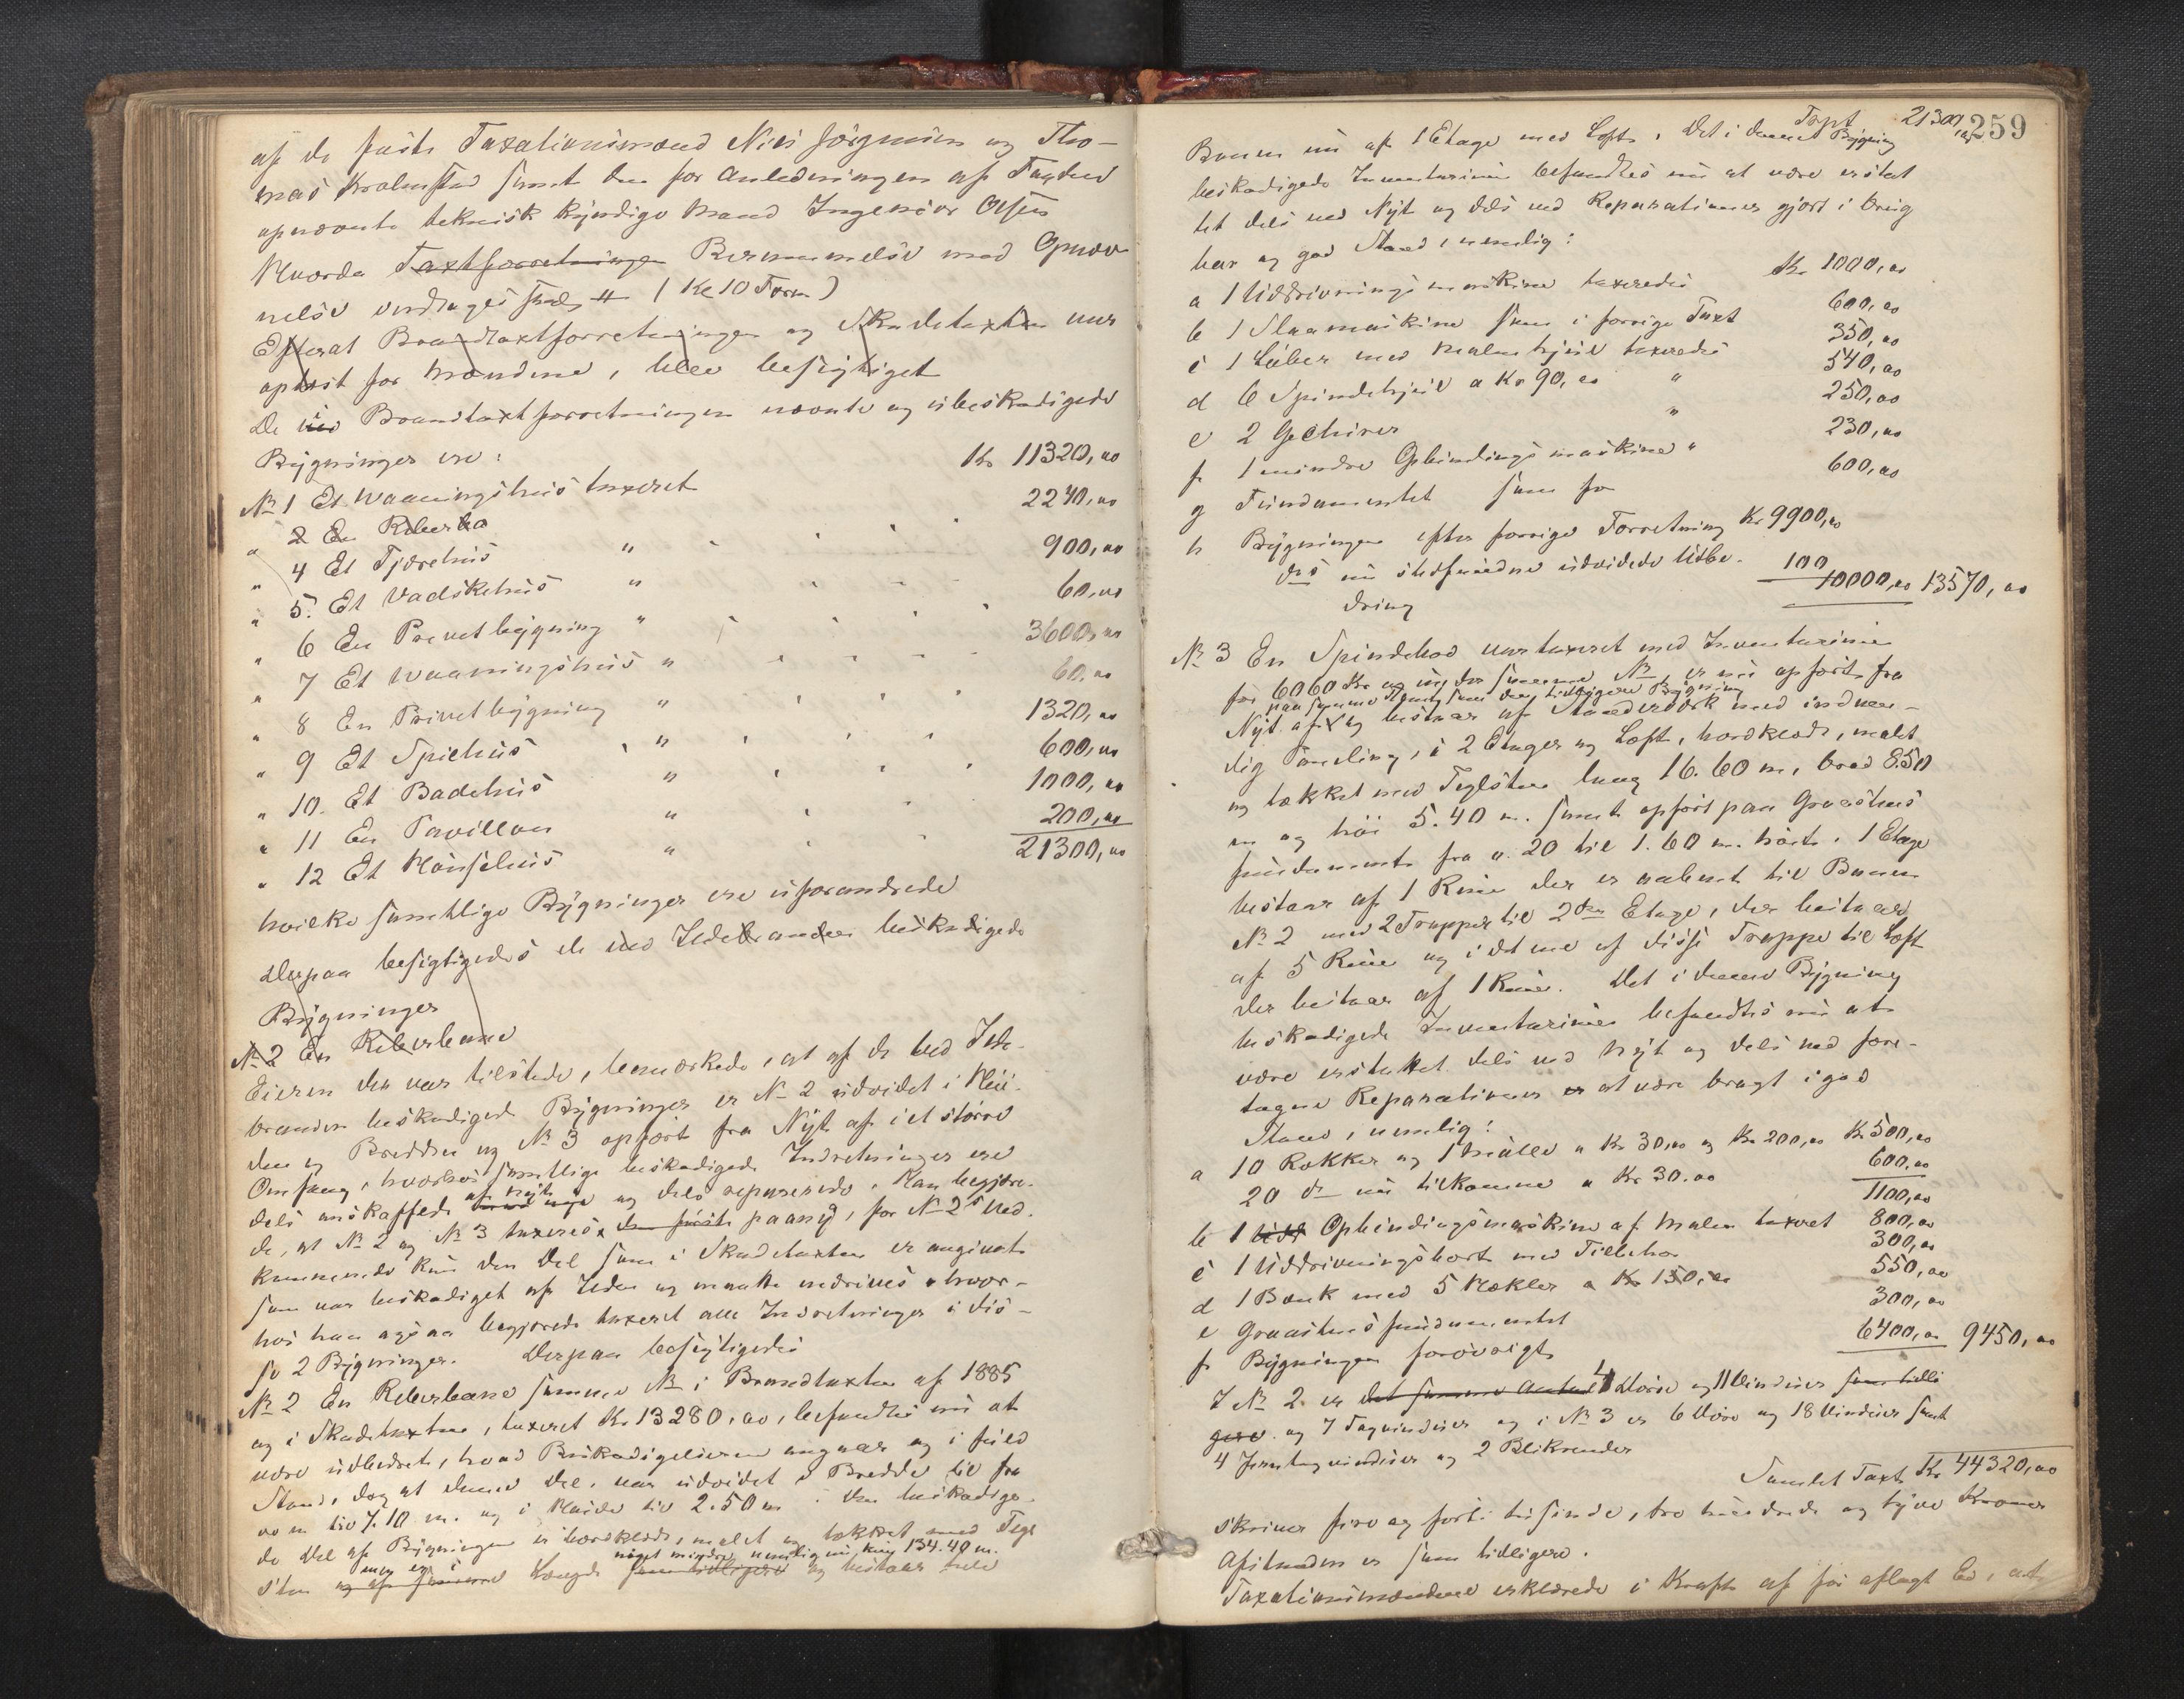 af de faste Taxationsmænd Nils Jörgensen og Tho-
mas Kvalmstad samt den for Anledningen af Fogden
opnævnte teknisk kyndige Mand Ingeniör Olsen
Hvorda Taxtforretningen Berammelse med Opnæv-
nelse vedtages (Kl 10 Form)
Efterat Brandtaxtforretningen og Skadetaxten var
oplæst for Mændene, blev besigtiget
De i Brandtaxtforretningen nævnte og ubeskadigede
Bygninger ere:
No 1 Et Waaningshus taxeret Kr 11320,00
" 2 En Reberba
" 4 Et Tjærehus " 2240,00
" 5. Et Vadskehus " 900,00
" 6 En Privetbygning " 60,00
" 7 Et Waaningshus " 3600,00
" 8 En Privetbygning " 60,00
" 9 Et Spilhus " 1320,00
" 10. Et Badehus " 600,00
" 11 En Pavillon " 1000,00
" 12 Et Hönsehus " 200,00
21300,00
hvilke samtlige Bygninger ere uforandrede
Derpaa besigtigedes de ved Ildebranden beskadigede
Bygninger
No 2 En Reberbane
Eieren der var tilstede, bemærkede, at af de ved Ilde-
branden beskadigede Bygninger er No 2 udvidet i Höi-
den og Bredden og No 3 opfört fra Nyt af i et större
Omfang, hvorhos samtlige beskadigede Indretninger ere
dels anskaffede af nyt og dels reparerede. Han begjære-
de, at No 2 og No 3 taxeres paany, for No 2s Ved-
kommende kun den Del som i Skadetaxten er angivet
som var beskadiget af Ilden og maatte nedrives, hvor-
hos han ogsaa begjærede taxeret alle Indretninger i dis-
se 2 Bygninger. Derpaa besigtigedes
No 2 En Reberbane samme No i Brandtaxten af 1885
og i Skadetaxten, taxeret Kr 13280,00, befandtes nu at
være udbedret, hvad Beskadigelserne angaar og i fuld
Stand, dog at denne Del, var udvidet i Bredde til fra
00 m til 7.10 m. og i Höide til 2.50 m. Den beskadige-
de Del af Bygningen er bordklædt, malet og tækket med Tegl
noget mindre nemlig nu kun 134.40 m.
sten og af samme Længde som tidligere og bestaar hele
Taxt 21300,00
259
Banen nu af 1 Etage med Loft. Det i denne Bygning
beskadigede Inventarium befandtes nu at være erstat
tet dels ved Nyt og dels ved Reparationer gjort i brug
bar og god Stand, nemlig:
a 1 Uddrivningsmaskine taxeredes Kr 1000,00
b 1 Slaamaskine som i forrige Taxt 600,00
c 1 Löber med Malmhjul taxeredes 350,00
d 6 Spindehjul a Kr 90,00 " 540,00
e 2 Gechirer " 250,00
f 1 mindre Opbindingsmaskine " 230,00
g Fundamentet som för 600,00
h Bygningen efter forrige Forretning Kr 9900,00
des nu stedfundne udvidede Udbe- 100
dring 10000,00 13570,00
No 3 En Spindebod var taxeret med Inventarium
for 6060 Kr og under samme No, er nu opfört fra
paa samme Tomt som den tidligere Bygning
Nyt af og bestaar af Standerværk med indven-
dig Paneling, i 2 Etager og Loft, bordklædt, malet
og tækket med Teglsten lang 16.60 m, bred 8.50
m og höi 5.40 m. samt opfört paa Graastens
fundament fra 0.20 til 1.60 m. höit. 1 Etage
bestaar af 1 Rum der er aabent til Banen
No 2 med 2 Trapper til 2den Etage, der bestaar
af 5 Rum og i det ene af disse Trappe til Loft
der bestaar af 1 Rum. Det i denne Bygning
beskadigede Inventarium befandtes nu at
være erstattet dels ved Nyt og dels ved fore-
tagne Reparationer at være bragt i god
Stand, nemlig:
a 10 Rokker og 1 Mölle a Kr 30,00 og Kr 200,00 Kr 500,00
20 do nu tilkomne a Kr 30.00 600,00
1100,00
b 1 Opbindingsmaskine af Malm taxeret 800,00
c 1 Uddrivningsbort med Tilbehör 300,00
d 1 Bænk med 5 Hækler a Kr 150,00 550,00
e Graastensfundamentet 300,00
f Bygningen forövrigt 6400,00 9450,00
I No 2 er det samme Antal 4 Döre og 11 Vinduer som tidli
gere og 7 Tagvinduer og i No 3 er 6 Döre og 18 Vinduer samt
4 Jerntagvinduer og 2 Blikrender
Samlet Taxt Kr 44320,00
skriver fire og forti tusinde, tre hundrede og tyve Kroner
Afstanden er som tidligere.
Taxationsmændene erklærede i Kraft af för aflagt Ed, at